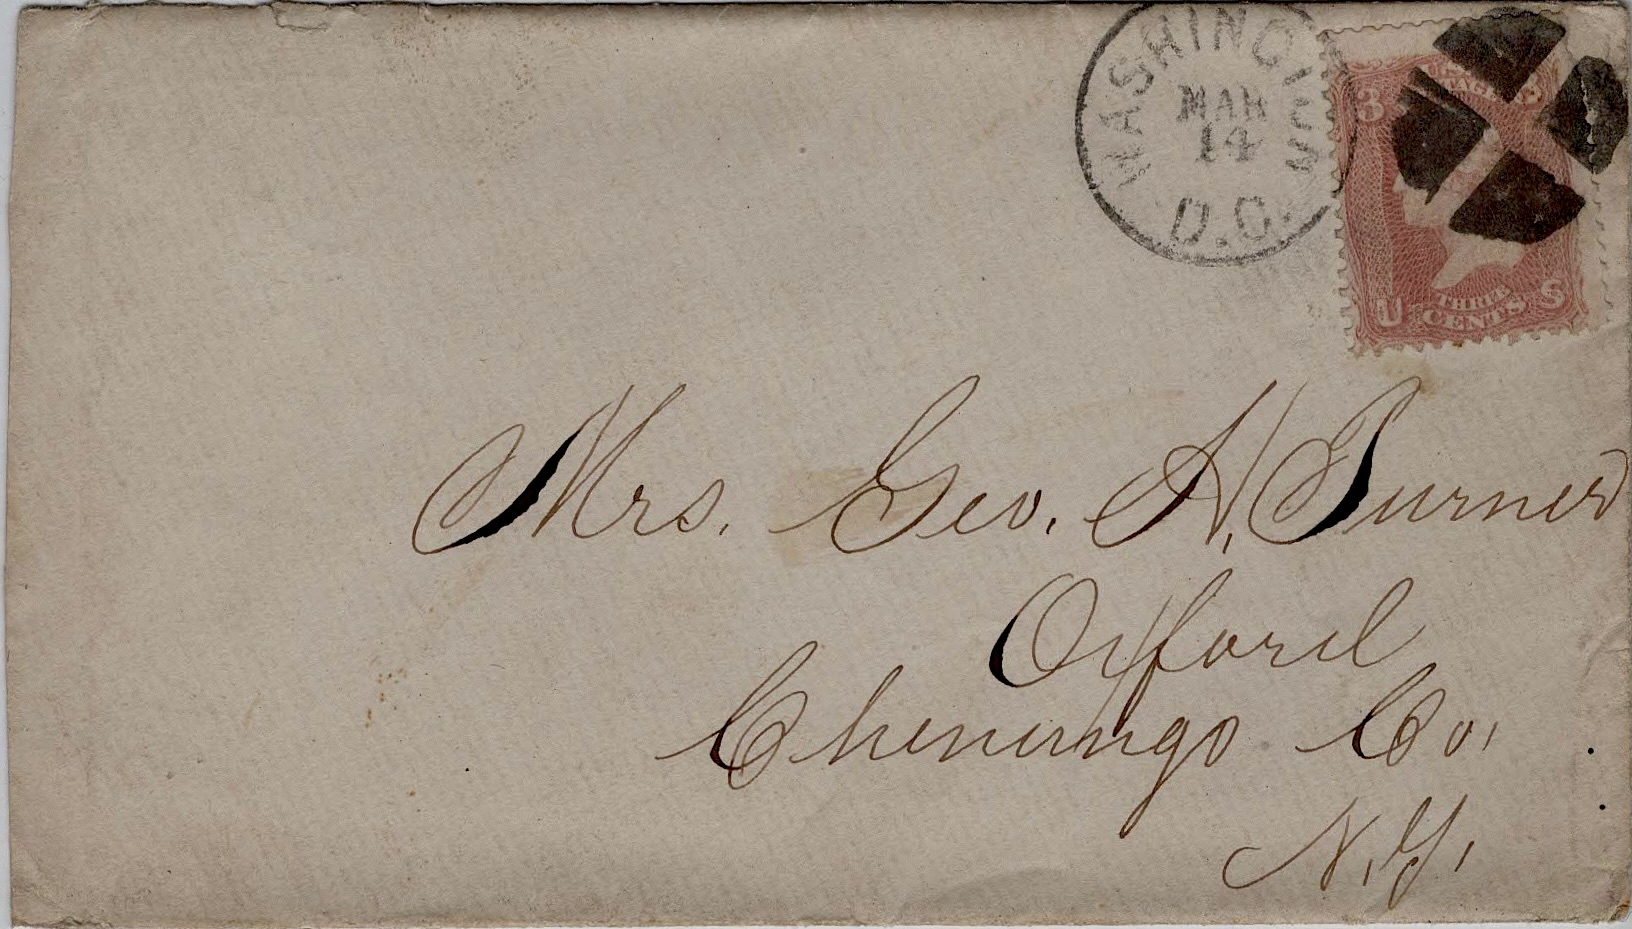 WASHINGTON
MAR
14
D.C.
3
U THREE CENTS S
Mrs. Geo. A. Turner
Oxford
Chenango Co.
N.Y.